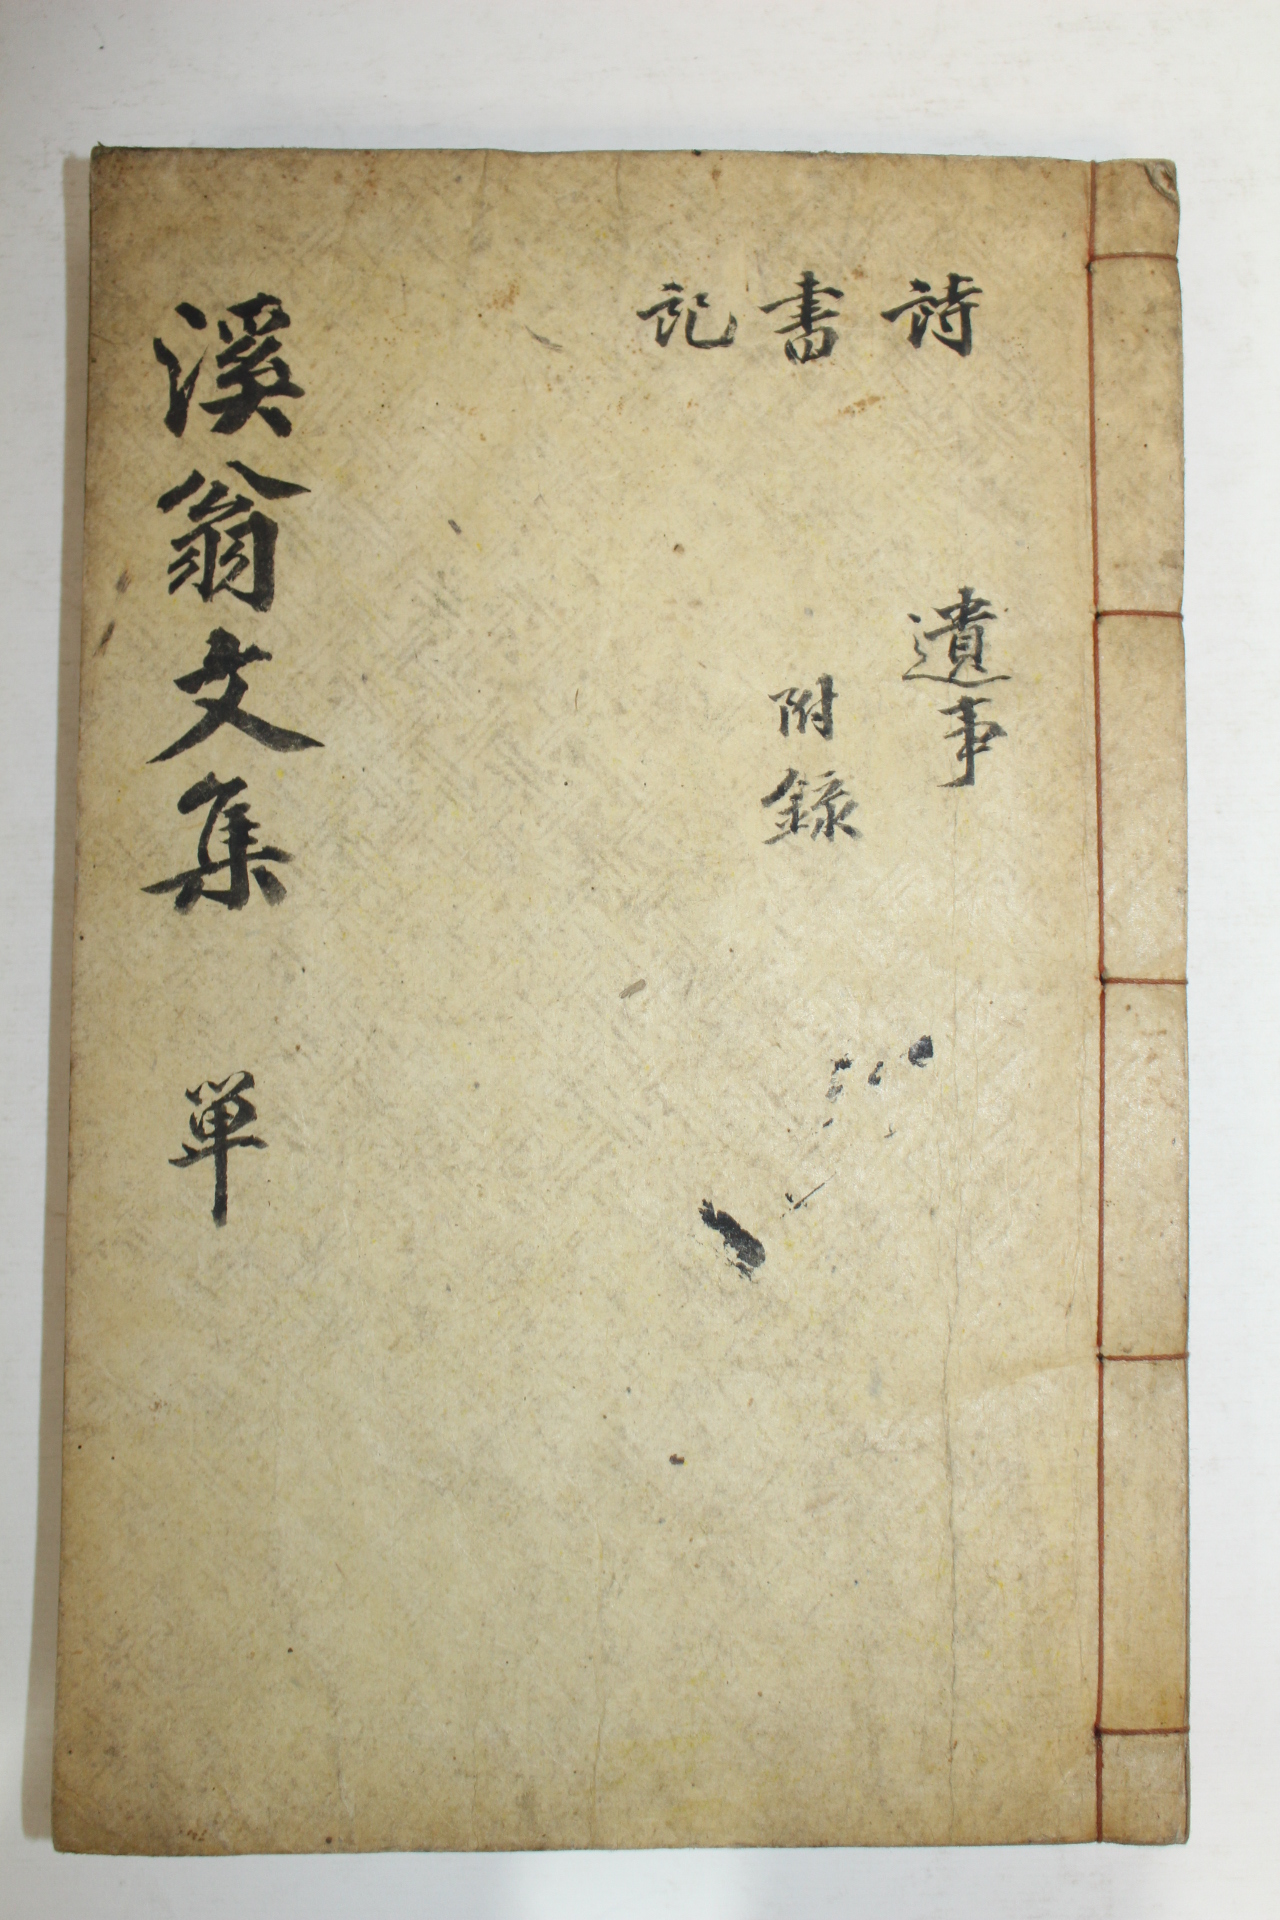 詩
書
記
遺事
附錄
溪翁文集 単